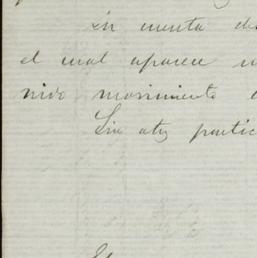 La cuenta de
el cual aparece
nido movimiento
Sin otro partic